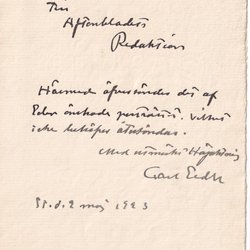 Till
Aftenbladets
Redaktion
Härmed återsändes det af
Eder önskade porträttet, vilket
icke behöfver återsändas.
Med utmärkt Högaktning
Carl
d. 2 maj 1923